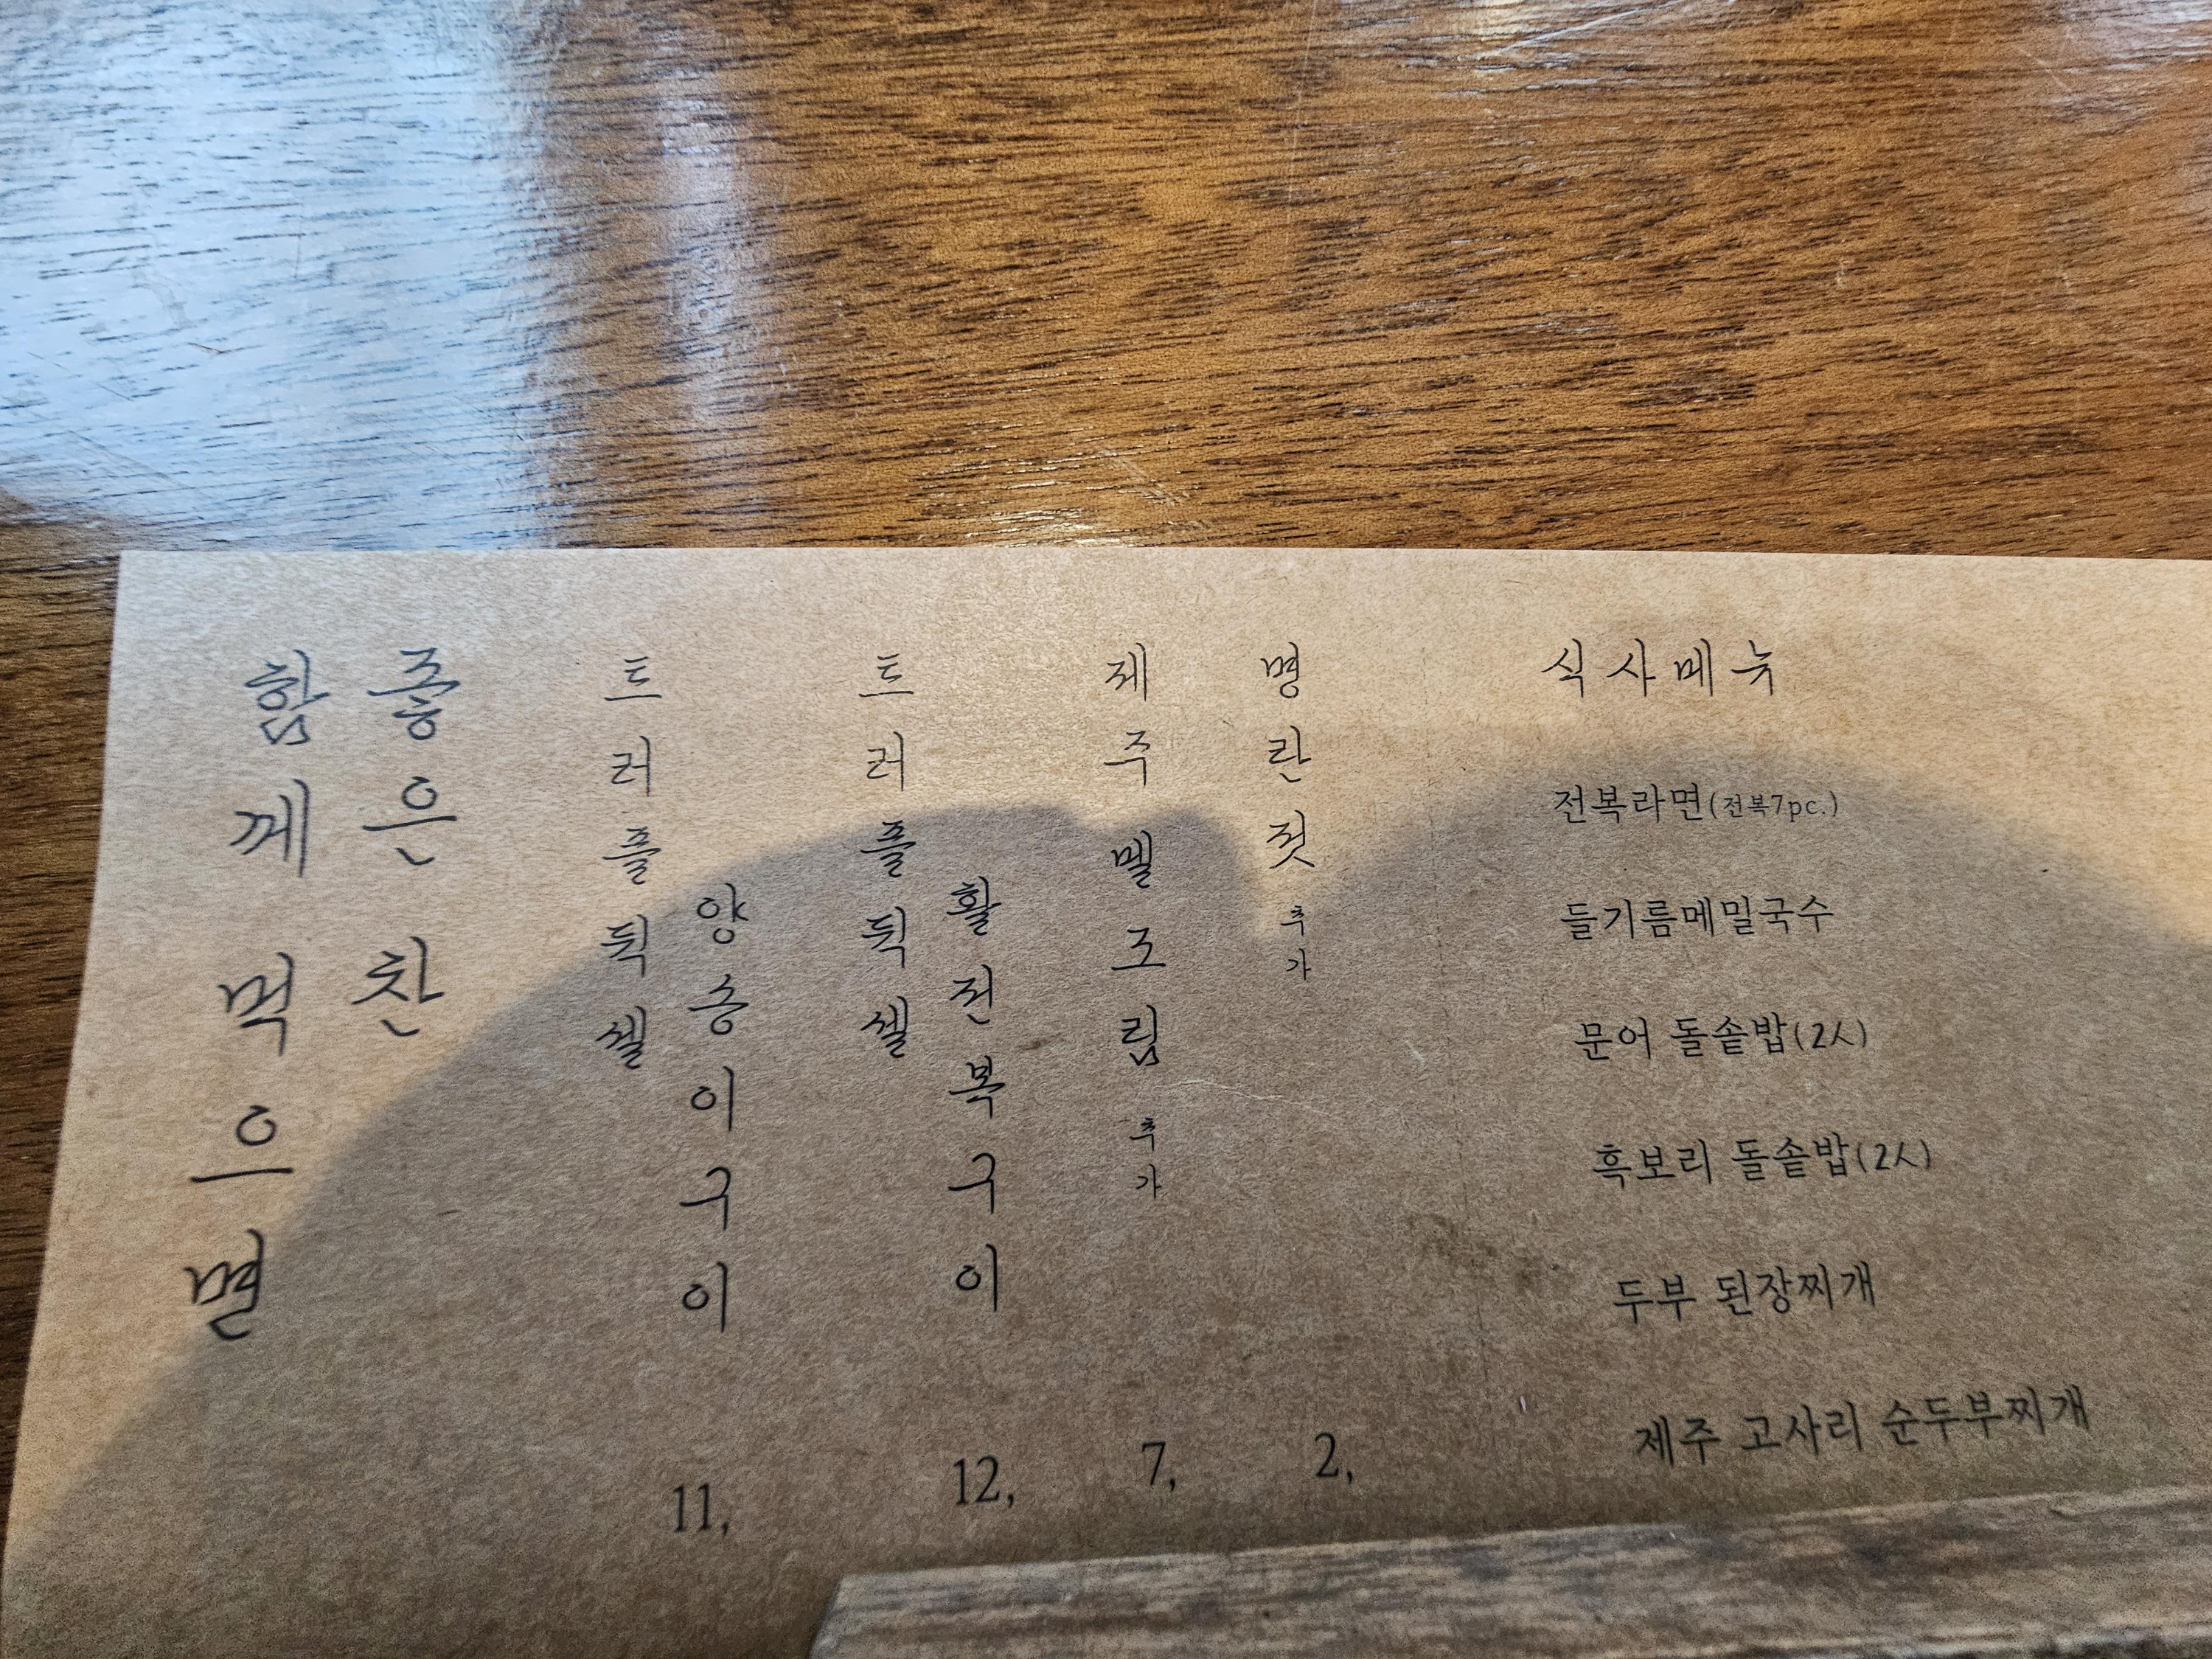 함께 먹으면
좋은 찬
트러플 뒥셀
양송이구이
11,
트러플 뒥셀
활전복구이
12,
제주 멜조림 추가
7,
명란젓 추가
2,
식사메뉴
전복라면(전복7pc.)
들기름메밀국수
문어 돌솥밥(2人)
흑보리 돌솥밥(2人)
두부 된장찌개
제주 고사리 순두부찌개